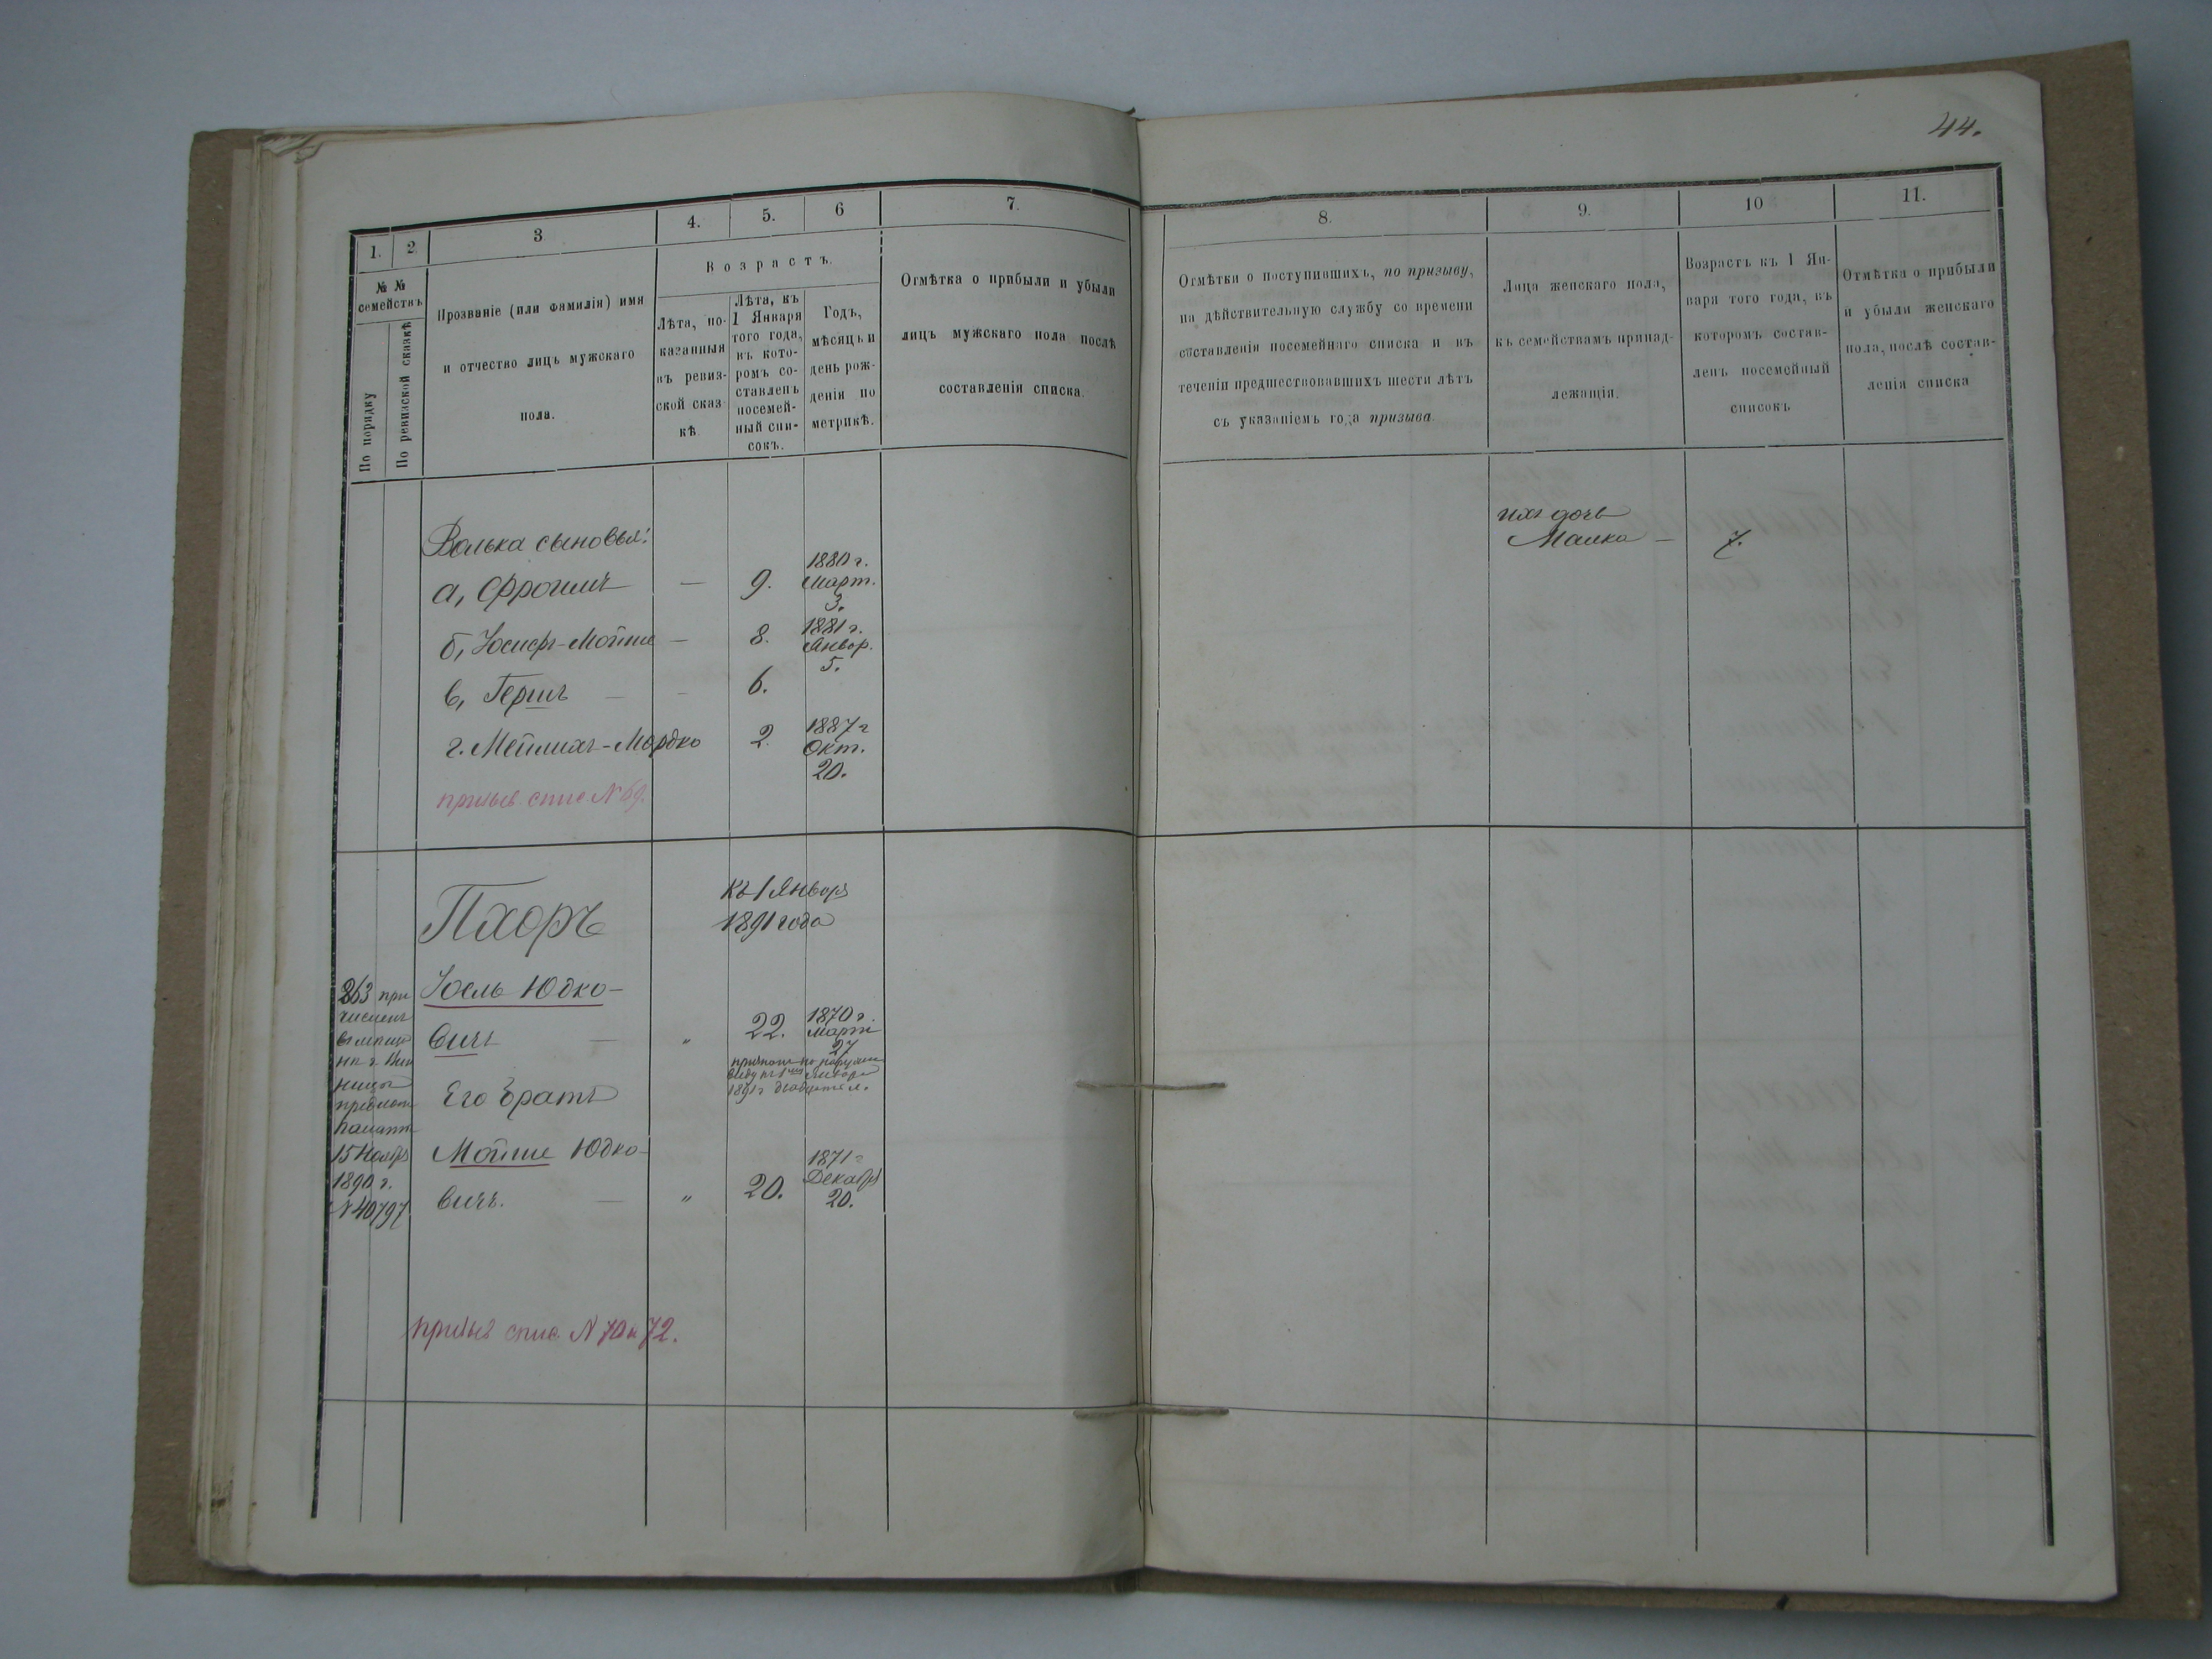 44.
1.
2.
3.
4.
5.
6
7.
8.
9.
10
11.
№ №
семействъ
По порядку
По ревизской сказкѣ
Прозваніе (или фамилія) имя
и отчество лицъ мужскаго
пола.
Возрастъ.
Лѣта, по-
казанныя
въ ревиз-
ской сказ-
кѣ.
Лѣта, къ
1 Января
того года,
въ кото-
ромъ со-
ставленъ
посемей-
ный спи-
сокъ.
Годъ,
мѣсяцъ и
день рож-
денія по
метрикѣ.
Отмѣтка о прибыли и убыли
лицъ мужскаго пола послѣ
составленія списка.
Отмѣтки о поступившихъ, по призыву,
на дѣйствительную службу со времени
составленія посемейнаго списка и въ
теченіи предшествовавшихъ шести лѣтъ
съ указаніемъ года призыва.
Лица женскаго пола,
къ семействамъ принад-
лежащія.
Возрастъ къ 1 Ян-
варя того года, въ
которомъ состав-
ленъ посемейный
списокъ
Отмѣтка о прибыли
и убыли женскаго
пола, послѣ состав-
ленія списка
Волька сыновья:
а, Фроимъ — 9. 1880 г. Март. 3.
б, Іосифъ-Мойше — 8. 1881 г. Январ. 5.
в, Гершъ — - 6.
г. Мейлихъ-Мордко 2. 1887 г Окт. 20.
призыв. спис. N 69.
ихъ дочь
Малка — 7.
Пхоръ
Къ 1 Января
1891 года
263 при
численъ
въ мѣщан
нницы
предлож
палаты
15 Ноября
1890 г.
N 40797
Іосль Юдко-
вичъ — " 22. 1870 г. Марта 27
признанъ по наружн
виду къ 1 Января
1891 г двадцати л.
Его братъ
Мойше Юдко-
вичъ. — " 20. 1871 г Декабр 20.
призыв спис N 70 и 72.